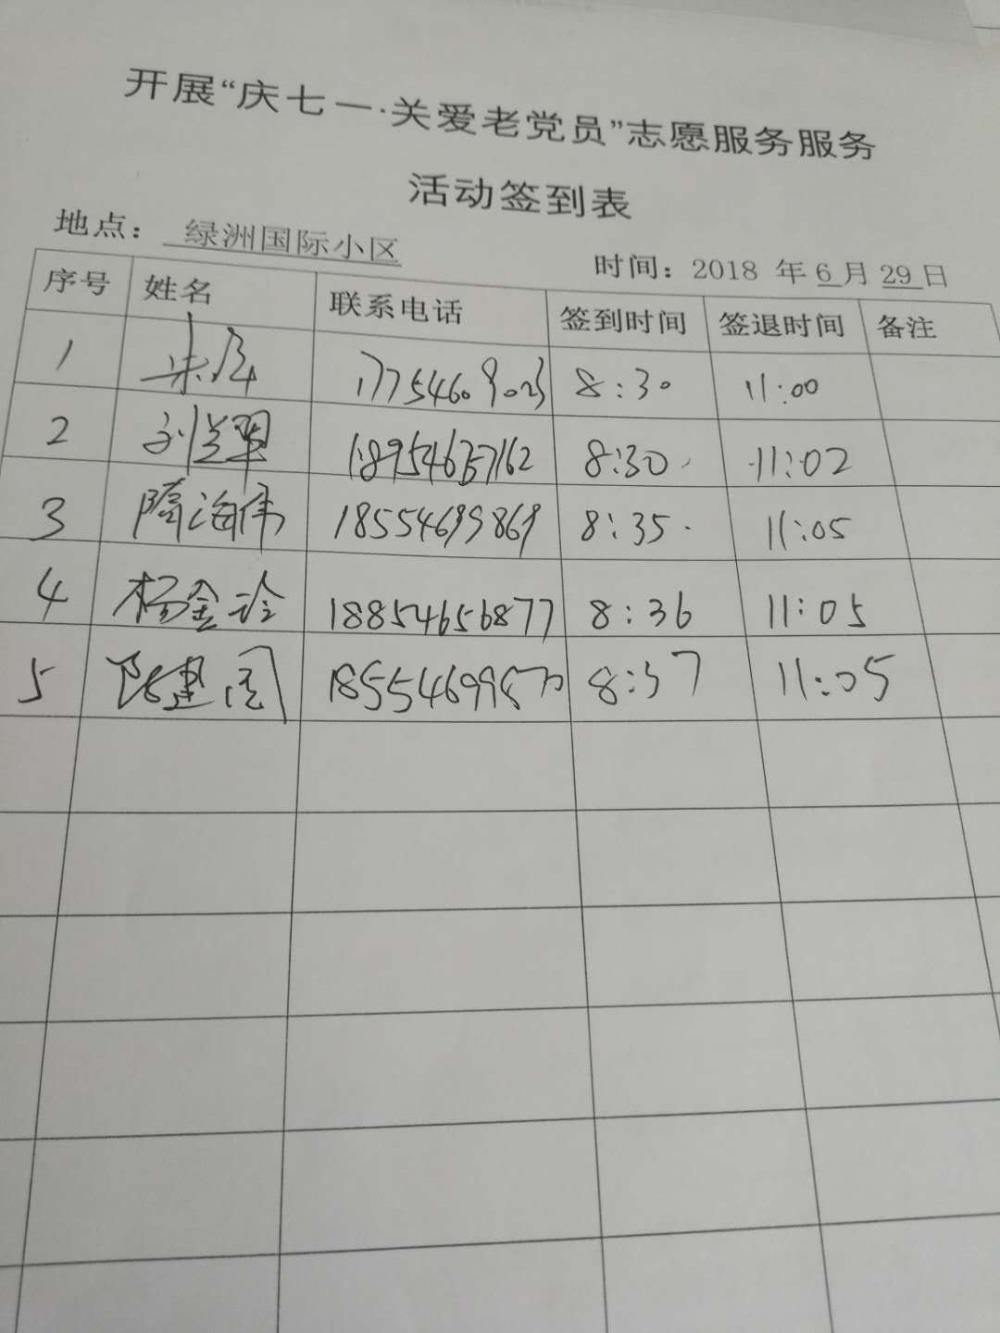 开展“庆七一·关爱老党员”志愿服务服务
活动签到表
地点： 绿洲国际小区
时间：2018 年 6 月 29 日
序号 姓名 联系电话 签到时间 签退时间 备注
1 8:30 11:00
2 刘兰翠 8:30 11:02
3 隋海伟 18554699869 8:35 11:05
4 杨金玲 18854656877 8:36 11:05
5 8:37 11:05